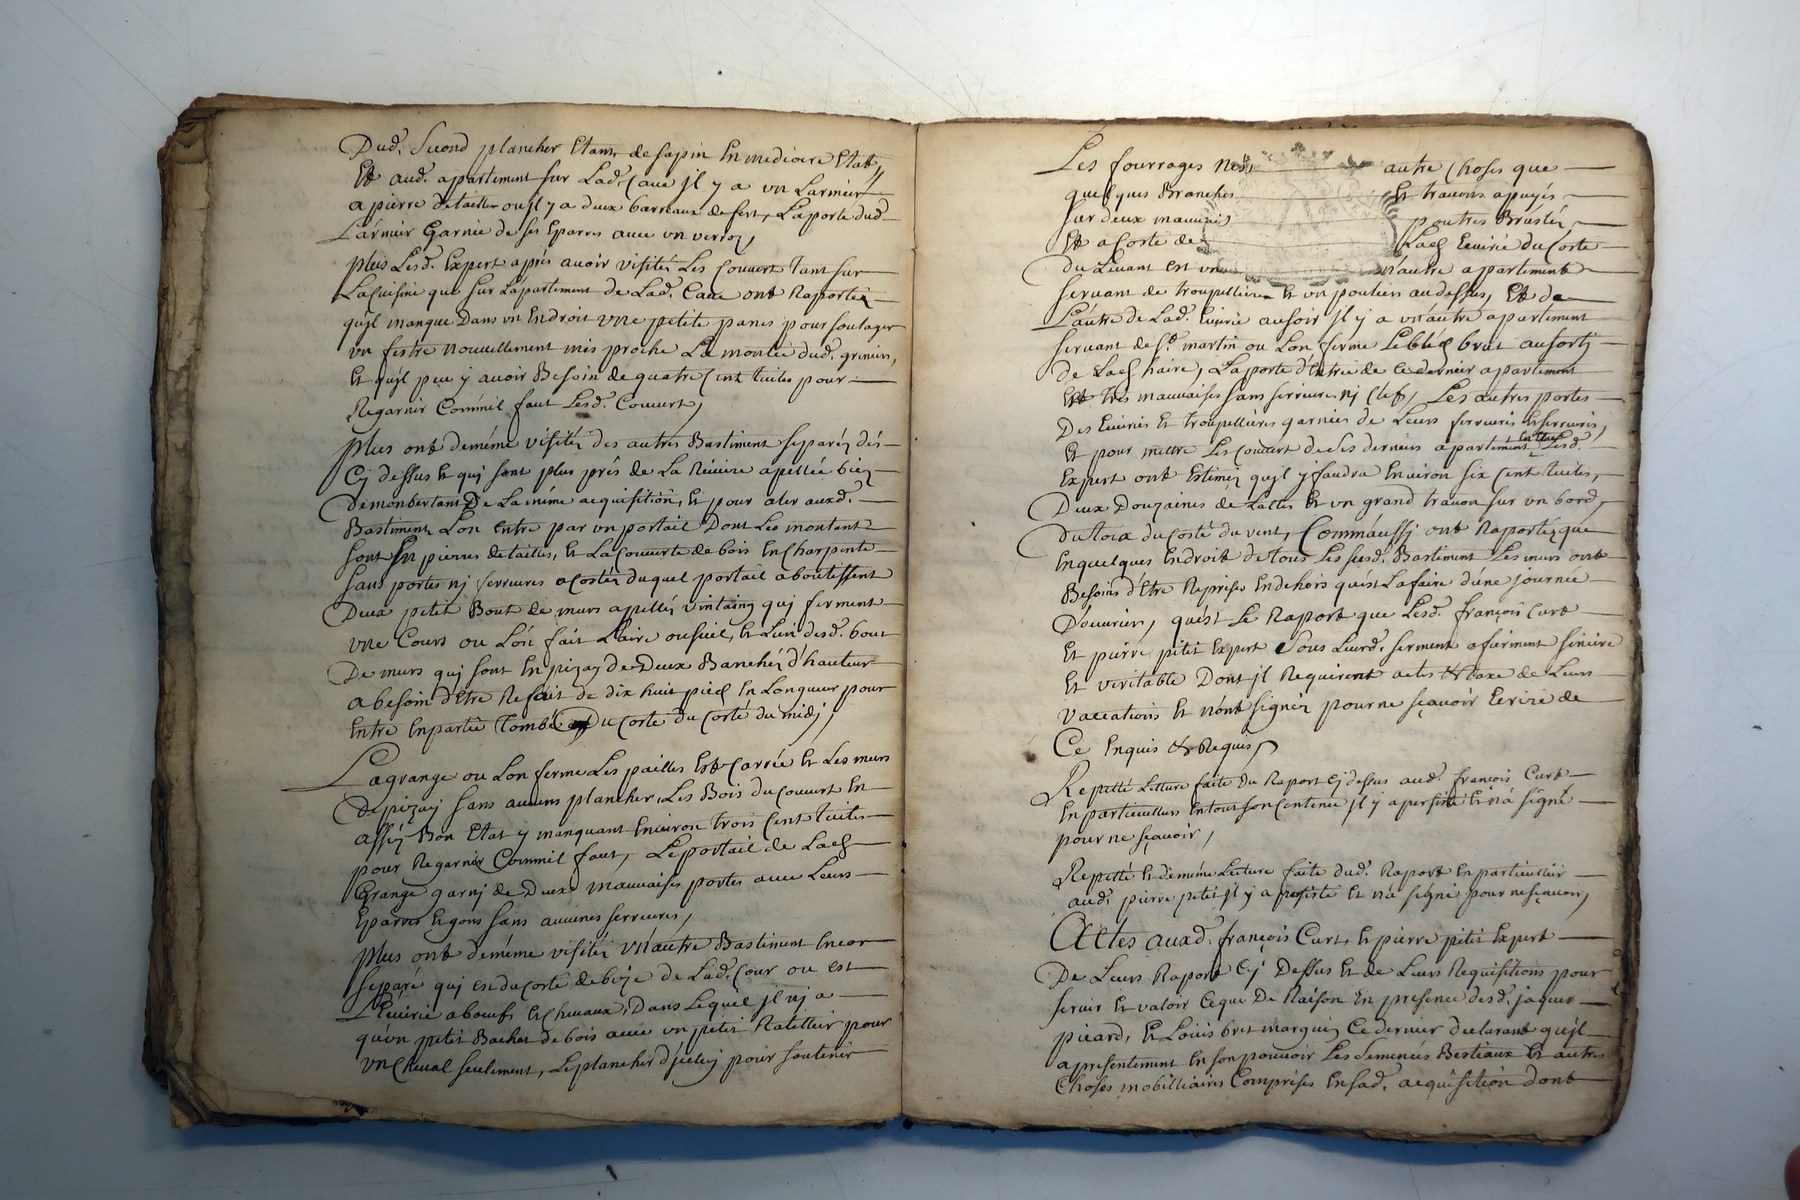 Dud. Second plancher Etant de sapin En mediocre Etat,
Et aud. apartement sur Lad. Cave jl y a un Larmier
a pierre de taille ou jl y a deux barreaux de fert, La porte dud.
Larmier Garnie de ses Eparres avec un verroz,
Plus Lesd. Expert aprés avoir visitéz Les Couvert tant sur
La Cuisine que sur Lapartement de Lad. Cave ont Raportéz
qu'jl manque Dans un Endroit une petite panes pour soulager
un festre nouvellement mis proche La montée dud. greniers,
Et qu'jl peu y avoir Besoin de quatre Cent tuiles pour
Regarnir Comm'il faut Lesd. Couvert,
Plus ont de méme visitéz des autres Bastiment separéz des
Cy dessus Et quj sont plus prés de La Riviere apellée biez
De montbertand De La méme acquisition, Et pour aler auxd.
Bastiment Lon Entre par un portail Dont Les montant
sont En pierres de tailles, Et La Couverte de bois En Charpente
sans portes nj serrures a Costéz duquel portail aboutissent
Deux petit Bout de murs apelléz vintaing quj ferment
une Cours ou L'on fait L'aire ou suel, Et L'un desd. bout
De murs quj sont En pizay de Deux Banchéz d'hauteur
a besoin d'Etre Refait de dix huit pied En Longueur pour
Entre En partie Tombé Du Costé du midj,
La grange ou Lon ferme Les pailles Est Carrée Et Les murs
De pizay sans aucuns plancher, Les Bois du Couvert En
asséz Bon Etat y manquant Environ trois Cent tuiles
pour Regarnir Comm'il faut, Le portail de Lad.
Grange garnj de Deux mauvaises portes avec Leurs
Eparres Et gons sans aucunes serrures,
Plus ont de méme visitéz un'autre Bastiment Encor
separé quj est du Costé de bize de Lad. Cour ou est
L'Ecurie a boeufs Et Chevaux, Dans Lequel jl nj a
qu'un petit Bachat de bois avec un petit Ratellier pour
un Cheval seulement, Le plancher d'jceluj pour soutenir
Les fourrages n'est autre Choses que
quelques Branches Et travons apuyés
sur deux mauvais poutres Brustes,
Et a Costé de Lad. Ecurie du Costé
du Levant est un un'autre apartement
servant de troupelliere Et un poulier au dessus, Et de
L'autre de Lad. Ecurie au soir jl y a un autre apartement
servant de St. martin ou Lon ferme Le bled brut au sortj
de Lad. haire, La porte d'Entrée de Ce dernier apartement
Est trés mauvaises sans serrures nj Clef, Les autres portes
Des Ecuries Et troupellieres garnies de Leurs ferrures Et serrures,
Et pour mettre Les Couvert de Ces derniers apartement En Etat Lesd.
Expert ont Estiméz qu'jl y faudra Environ six Cent tuiles,
Deux Douzaines de Lattes Et un grand travon sur un bord
Du toit du Costé du vent, Comm'aussj ont Raportéz que
En quelques Endroit de tous Les susd. Bastiment Les murs ont
Besoins d'Etre Reprises En dehors qu'est L'afaire d'une journée
D'ouvrier, qu'est Le Raport que Lesd. françois Curt
Et pierre petit Expert Sous Leurd. serment afirment sincere
Et veritable Dont jl Requirent actes & taxe de Leurs
Vaccations Et n'ont signéz pour ne sçavoir Ecrire de
Ce Enquis & Requis,
Repetté Lecture faite du Raport Cj dessus aud. françois Curt
En particullier En tout son Contenu jl y a persisté Et n'a signé
pour ne sçavoir,
Repetté Et de méme Lecture faite dud. Raport En particullier
aud. pierre petit jl y a persisté Et n'a signé pour ne sçavoir,
Actes auxd. françois Curt Et pierre petit Expert
De Leurs Raport Cj Dessus Et de Leurs Requisitions pour
servir Et valoir Ce que De Raison En presence desd. jaques
picard, Et Louis bret marquiz Ce dernier declarant qu'jl
a presentement En son pouvoir Les semences Bestiaux Et autres
Choses mobilliaires Comprises En sad. acquisition dont